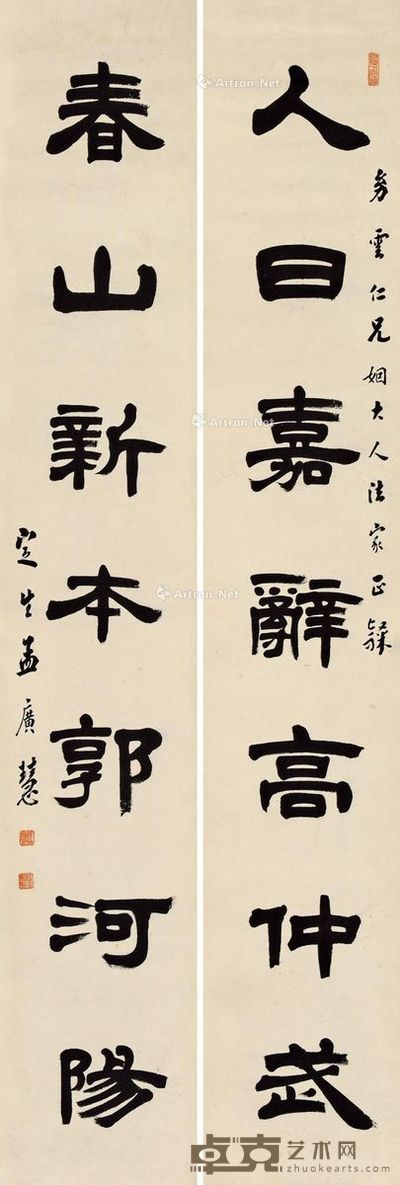 人日嘉辭高仲武
劳雲仁兄姻大人法家正
春山新本郭河陽
定生孟廣慧
Artron.Net
Artron.Net
Artron.Net
Artron.Net
卓克艺术网
www.zhuokearts.com